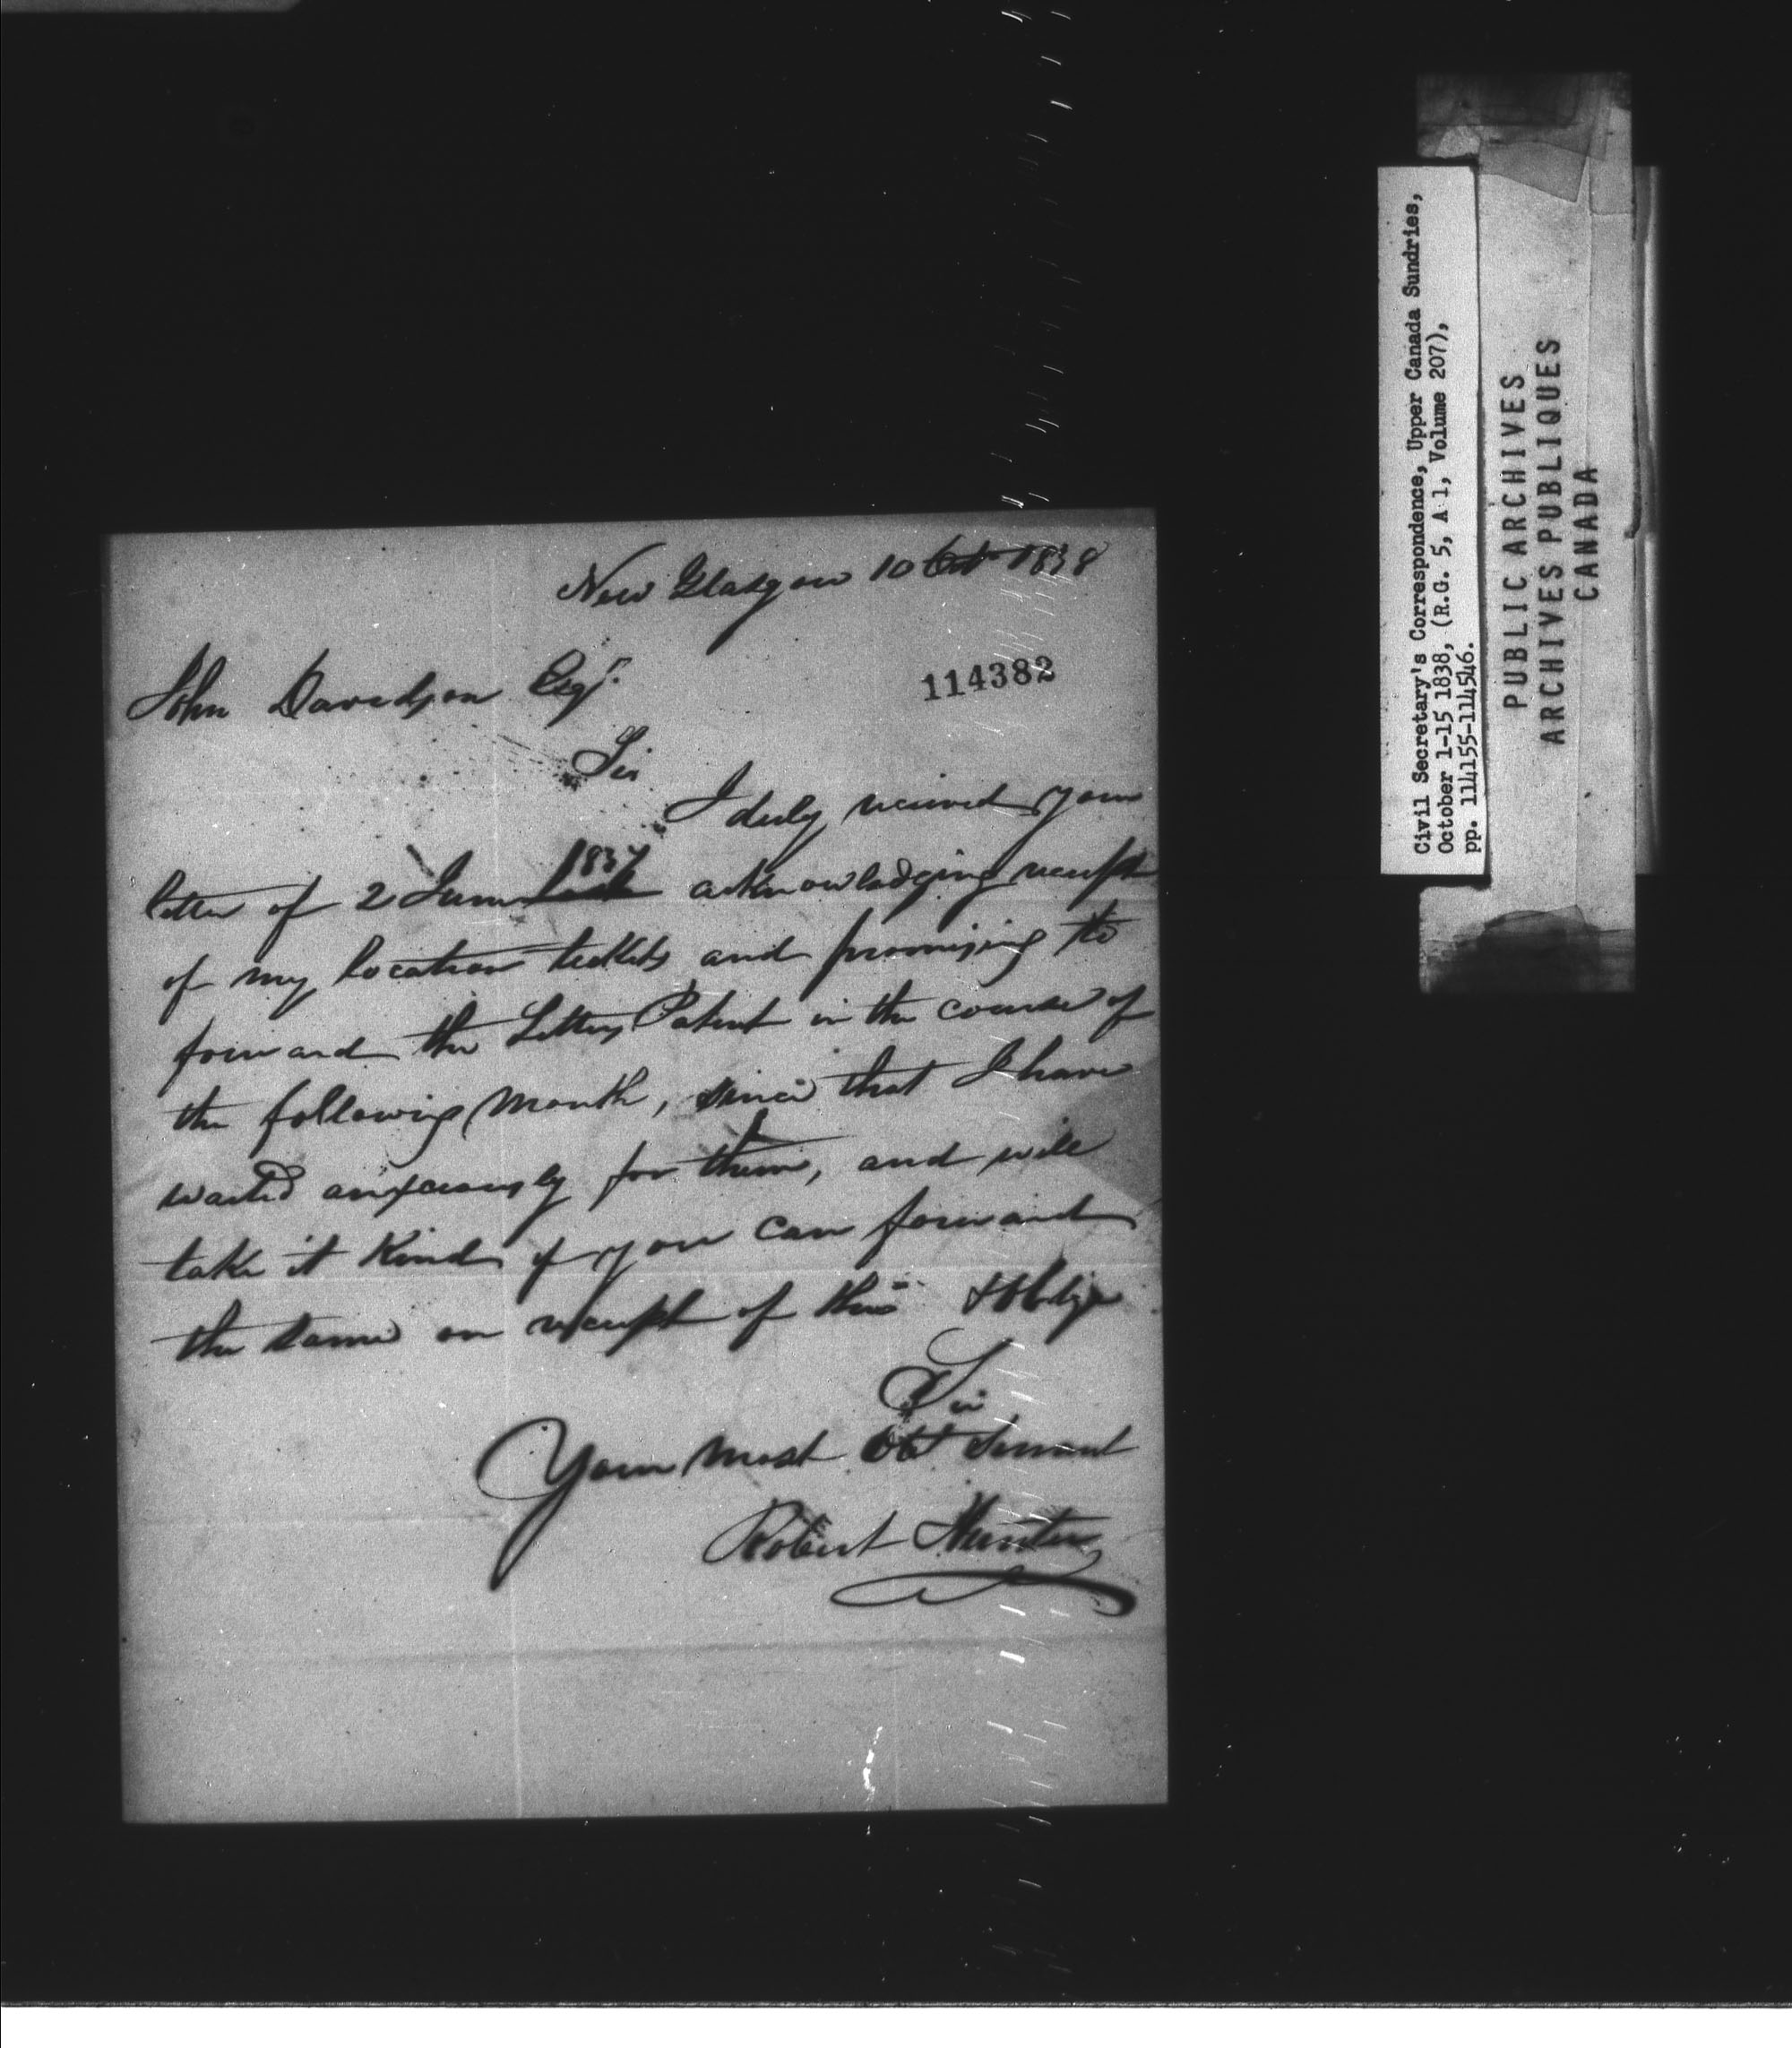 New Glasgow 10 Oct 1838
114382
John Davidson Esqr.
Sir
I duly received your
1837
letter of 2 June last acknowledging receipt
of my location tickets and promising to
forward the Letters Patent in the course of
the following Month, since that I have
waited anxiously for them, and will
take it Kind if you can forward
the same on receipt of this & oblige
Sir
Your most Obt Servant
Robert Hunter
Civil Secretary's Correspondence, Upper Canada Sundries,
October 1-15 1838, (R.G. 5, A 1, Volume 207),
pp. 114155-114546.
PUBLIC ARCHIVES
ARCHIVES PUBLIQUES
CANADA